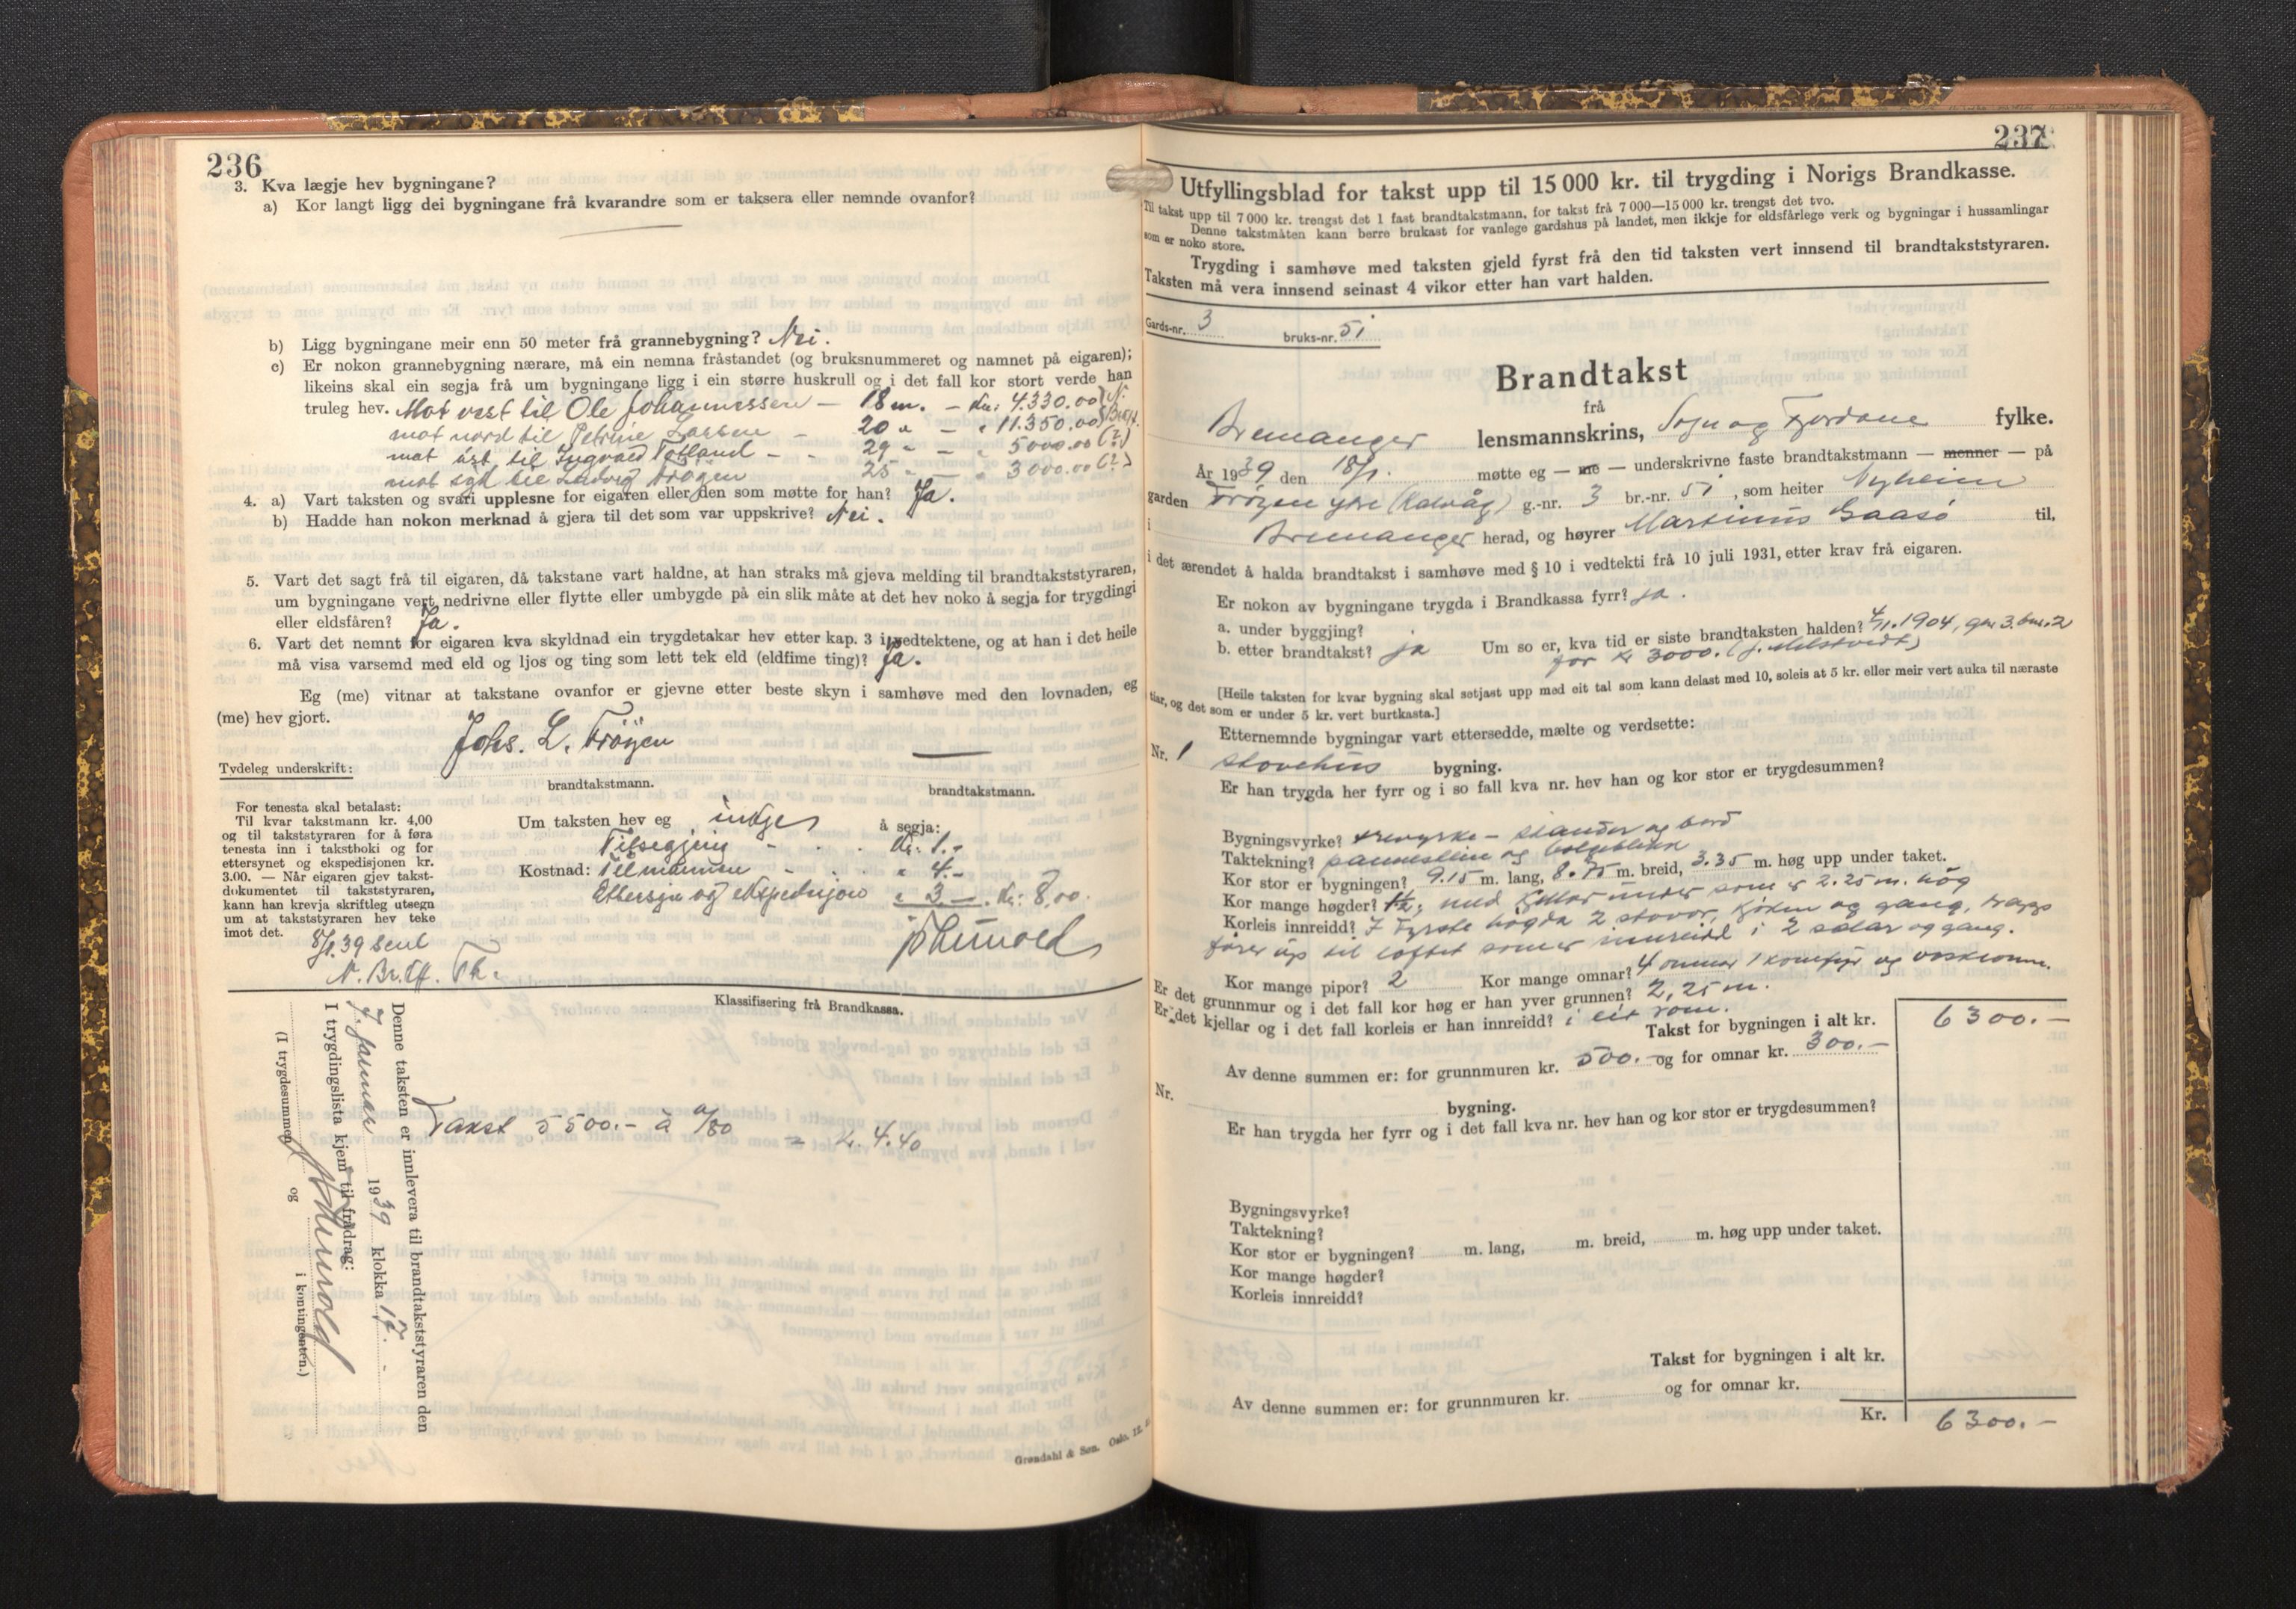 236
3. Kva lægje hev bygningane?
a) Kor langt ligg dei bygningane frå kvarandre som er taksera eller nemnde ovanfor?
b) Ligg bygningane meir enn 50 meter frå grannebygning? Nei.
c) Er nokon grannebygning nærare, må ein nemna fråstandet (og bruksnummeret og namnet på eigaren);
likeins skal ein segja frå um bygningane ligg i ein større huskrull og i det fall kor stort verde han
truleg hev. Mot vest til Ole Johannessen — 18 m. — Kr. 4.330.00
mot nord til Petrine Larsen — 20 " — " 11.350.00
mot aust til Ingvald Totland — - 29 " — " 5000.00 (?)
mot syd til Ludvig Frøyen 25 " — " 3000.00 (?)
4. a) Vart taksten og svari upplesne for eigaren eller den som møtte for han? Ja.
b) Hadde han nokon merknad å gjera til det som var uppskrive? Nei.
5. Vart det sagt frå til eigaren, då takstane vart haldne, at han straks må gjeva melding til brandtakststyraren,
um bygningane vert nedrivne eller flytte eller umbygde på ein slik måte at det hev noko å segja for trygdingi
eller eldsfåren? Ja.
6. Vart det nemnt for eigaren kva skyldnad ein trygdetakar hev etter kap. 3 i vedtektene, og at han i det heile
må visa varsemd med eld og ljos og ting som lett tek eld (eldfime ting)? Ja.
Eg (me) vitnar at takstane ovanfor er gjevne etter beste skyn i samhøve med den lovnaden, eg
(me) hev gjort.
Johs. L. Frøyen
Tydeleg underskrift:
brandtakstmann. brandtakstmann.
For tenesta skal betalast:
Til kvar takstmann kr. 4,00
og til takststyraren for å føra
tenesta inn i takstboki og for
ettersynet og ekspedisjonen kr.
3.00. — Når eigaren gjev takst-
dokumentet til takststyraren,
kann han krevja skriftleg utsegn
um at takststyraren hev teke
imot det.
Um taksten hev eg intges å segja:
Tilsegjing - . . Kr. 1.-
Kostnad: Til mannen - . . " 4.-
Ettersyn og ekspedisjon " 3.— . Kr. 8,00.
8/1.39 sent
N. Br.
Klassifisering frå Brandkassa.
Takst 5500.- à a/80 = Kr. 4.40
Denne taksten er innlevera til brandtakststyraren den
7. januar 1939 klokka 17.
I trygdingslista kjem til frådrag:
(I trygdesummen og i kontingenten.)
Grøndahl & Søn. Oslo.
237
Utfyllingsblad for takst upp til 15 000 kr. til trygding i Norigs Brandkasse.
Til takst upp til 7 000 kr. trengst det 1 fast brandtakstmann, for takst frå 7 000—15 000 kr. trengst det tvo.
Denne takstmåten kann berre brukast for vanlege gardshus på landet, men ikkje for eldsfårlege verk og bygningar i hussamlingar
som er noko store.
Trygding i samhøve med taksten gjeld fyrst frå den tid taksten vert innsend til brandtakststyraren.
Taksten må vera innsend seinast 4 vikor etter han vart halden.
Gards-nr. 3 bruks-nr. 51
Brandtakst
frå
Bremanger lensmannskrins, Sogn og Fjordane fylke.
År 1939 den 18/1. møtte eg — me — underskrivne faste brandtakstmann — menner — på
garden Frøyen ytre (Kalvåg) g.-nr. 3 br.-nr. 51, som heiter Nyheim
i Bremanger herad, og høyrer Martinus Gaasø til,
i det ærendet å halda brandtakst i samhøve med § 10 i vedtekti frå 10 juli 1931, etter krav frå eigaren.
Er nokon av bygningane trygda i Brandkassa fyrr? ja.
a. under byggjing?
b. etter brandtakst? ja Um so er, kva tid er siste brandtaksten halden? 4/11.1904, gnr 3. bnr. 2
for kr 3000.
[Heile taksten for kvar bygning skal setjast upp med eit tal som kann delast med 10, soleis at 5 kr. eller meir vert auka til næraste
tiar, og det som er under 5 kr. vert burtkasta.]
Etternemnde bygningar vart ettersedde, mælte og verdsette:
Nr. 1 stovehus bygning.
Er han trygda her fyrr og i so fall kva nr. hev han og kor stor er trygdesummen?
Bygningsvyrke? trevyrke - stander og bord
Taktekning? pannestein og bølgeblikk
Kor stor er bygningen? 9.15 m. lang, 8.75 m. breid, 3.35 m. høg upp under taket.
Kor mange høgder? 1½, med kjellar under som er 2.25 m. høg
Korleis innreidd? I fyrste høgda 2 stovor, kjøken og gang, trapp
fører up til loftet som er innreidd i 2 salar og gang.
Kor mange pipor? 2 Kor mange omnar? 4 omnar 1 komfyr og vaskeomn.
Er det grunnmur og i det fall kor høg er han yver grunnen? 2,25 m.
Er det kjellar og i det fall korleis er han innreidd? i eit rom.
Takst for bygningen i alt kr. 6300.—
Av denne summen er: for grunnmuren kr. 500.- og for omnar kr. 300.—
Nr. bygning.
Er han trygda her fyrr og i det fall kva nr. hev han og kor stor er trygdesummen?
Bygningsvyrke?
Taktekning?
Kor stor er bygningen? m. lang, m. breid, m. høg upp under taket.
Kor mange høgder?
Korleis innreidd?
Takst for bygningen i alt kr.
Av denne summen er: for grunnmuren kr. og for omnar kr.
Kr. 6300.—